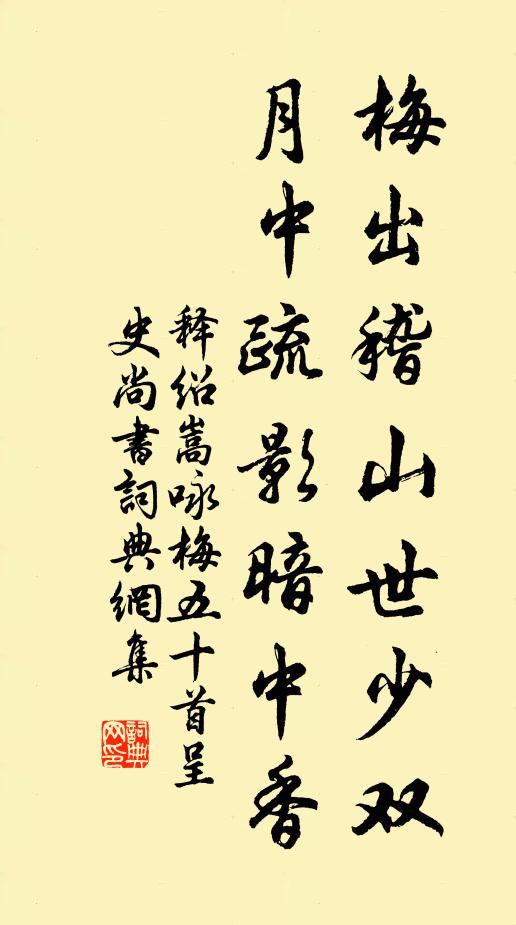 梅出稽山世少双
月中疏影暗中香
释绍嵩咏梅五十首呈
史尚书詞典網集
詞典
网印